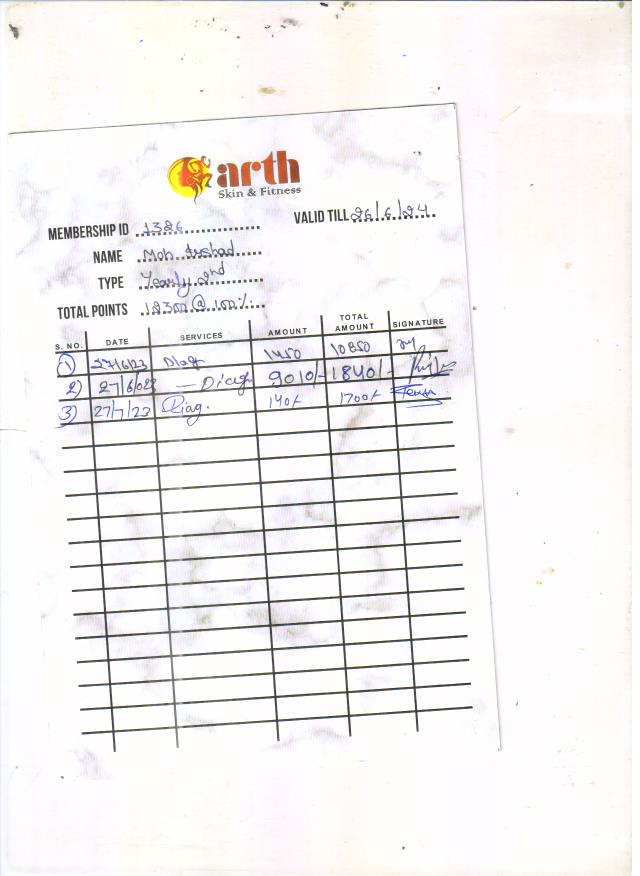 arth
Skin & Fitness
MEMBERSHIP ID 1326
VALID TILL 26/6/24
NAME Moh Arshad
TYPE Yearly 2nd
TOTAL POINTS 12300 @ 100%
S. NO. DATE SERVICES AMOUNT TOTAL AMOUNT SIGNATURE
1) 27/6/23 Diag 1450 10850
2) 27/6/023 — Diag 9010/- 1840/-
3) 27/7/23 Diag. 140/- 1700/-